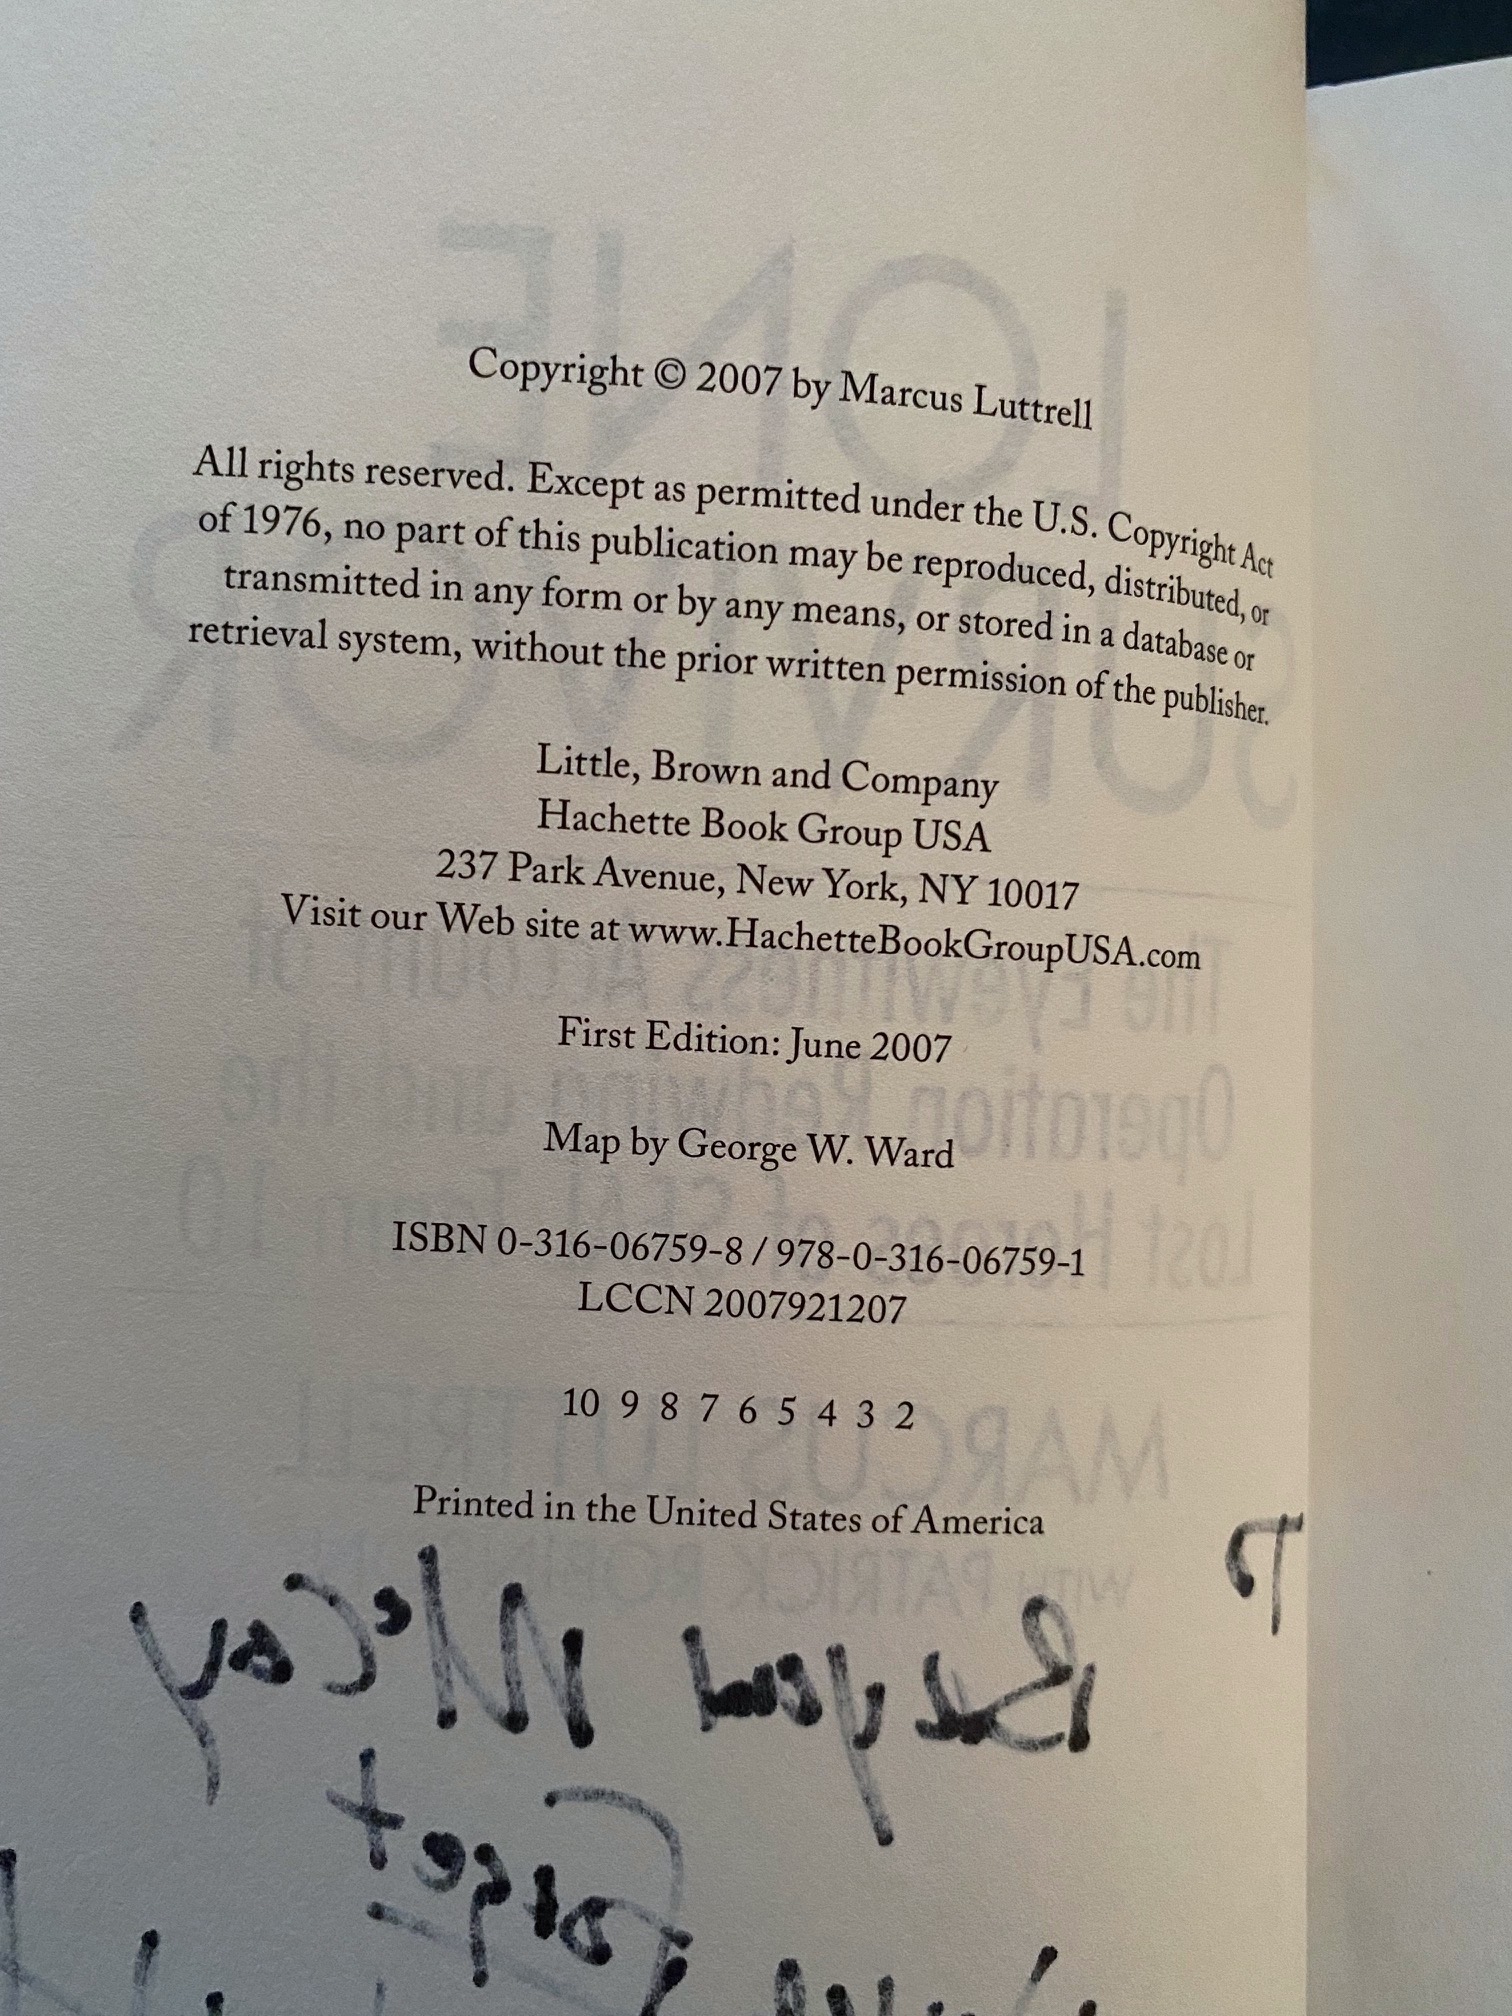 Copyright © 2007 by Marcus Luttrell
All rights reserved. Except as permitted under the U.S. Copyright Act
of 1976, no part of this publication may be reproduced, distributed, or
transmitted in any form or by any means, or stored in a database or
retrieval system, without the prior written permission of the publisher.
Little, Brown and Company
Hachette Book Group USA
237 Park Avenue, New York, NY 10017
Visit our Web site at www.HachetteBookGroupUSA.com
First Edition: June 2007
Map by George W. Ward
ISBN 0-316-06759-8 / 978-0-316-06759-1
LCCN 2007921207
10 9 8 7 6 5 4 3 2
Printed in the United States of America